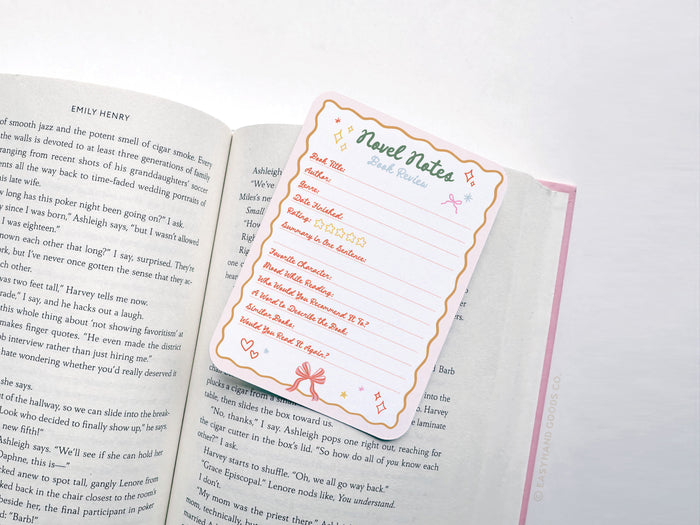 EMILY HENRY
of smooth jazz and the potent smell of cigar smoke. Every
the walls is devoted to at least three generations of family
ranging from recent shots of his granddaughters' soccer
ents all the way back to time-faded wedding portraits of
his late wife.
w long has this poker night been going on?" I ask.
y since I was born," Ashleigh says, "but I wasn't allowed
I was eighteen."
nown each other that long?" I say, surprised. They're
rk, but I've never once gotten the sense that they ac-
ch other.
was two feet tall," Harvey tells me now.
rade," I say, and he hacks out a laugh.
this whole thing about 'not showing favoritism' at
makes finger quotes. "He even made the district
b interview rather than just hiring me."
hate wondering whether you'd really deserved it
she says.
t of the hallway, so we can slide into the break-
Look who decided to finally show up," he says.
new fifth!"
Ashleigh says. "We'll see if she can hold her
Daphne, this is—"
cked anew to spot tall, gangly Lenore from
ked back in the chair closest to the room's
beside her, the final participant in poker
d: "Barb!"
Ashleigh
"We've
Miles's ne
Small
Right
Right
one c
"B
Novel Notes
Book Review
Book Title:
Author:
Genre:
Date Finished:
Rating:
Summary in One Sentence:
Favorite Character:
Mood While Reading:
Who Would You Recommend It To?
A Word to Describe the Book:
Similar Books:
Would You Read It Again?
Barb
Harvey
e laminate
plucks a cigar from a small
table, then slides the box toward us.
"No, thanks," I say. Ashleigh pops one right out, reaching for
the cigar cutter in the box's lid. "So how do all of you know each
other?" I ask.
Harvey starts to shuffle. "Oh, we all go way back."
"Grace Episcopal." Lenore nods like, You understand.
I don't.
"My mom was the priest there," Ashleigh
mom, technically, bu
married A
© EASYHAND GOODS CO.